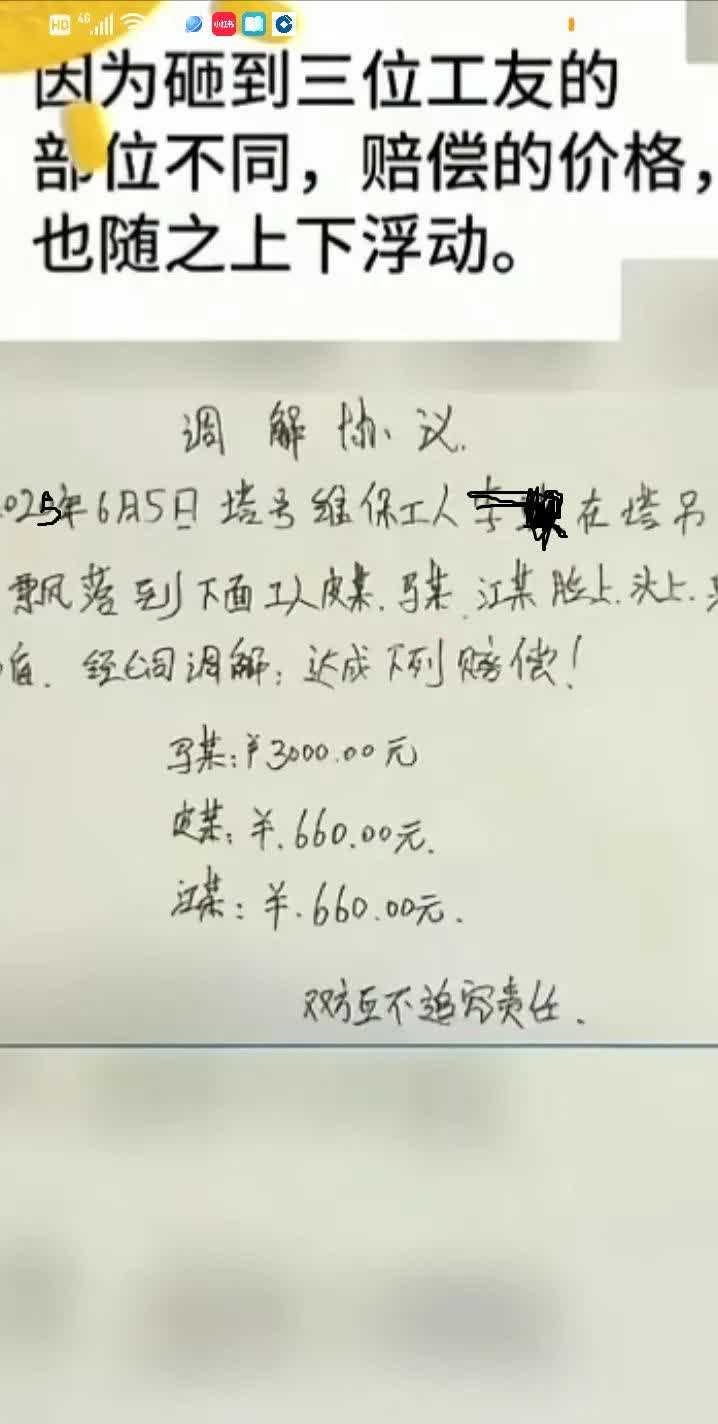 HD 4G
小红书
因为砸到三位工友的
部位不同，赔偿的价格，
也随之上下浮动。
调解协议.
025年6月5日 塔号维保工人李 在塔吊
飘落到下面工人皮某.马某.江某脸上.头上.
经公司调解：达成下列赔偿！
马某：¥3000.00元
皮某：¥.660.00元.
江某：¥.660.00元.
双方互不追究责任.